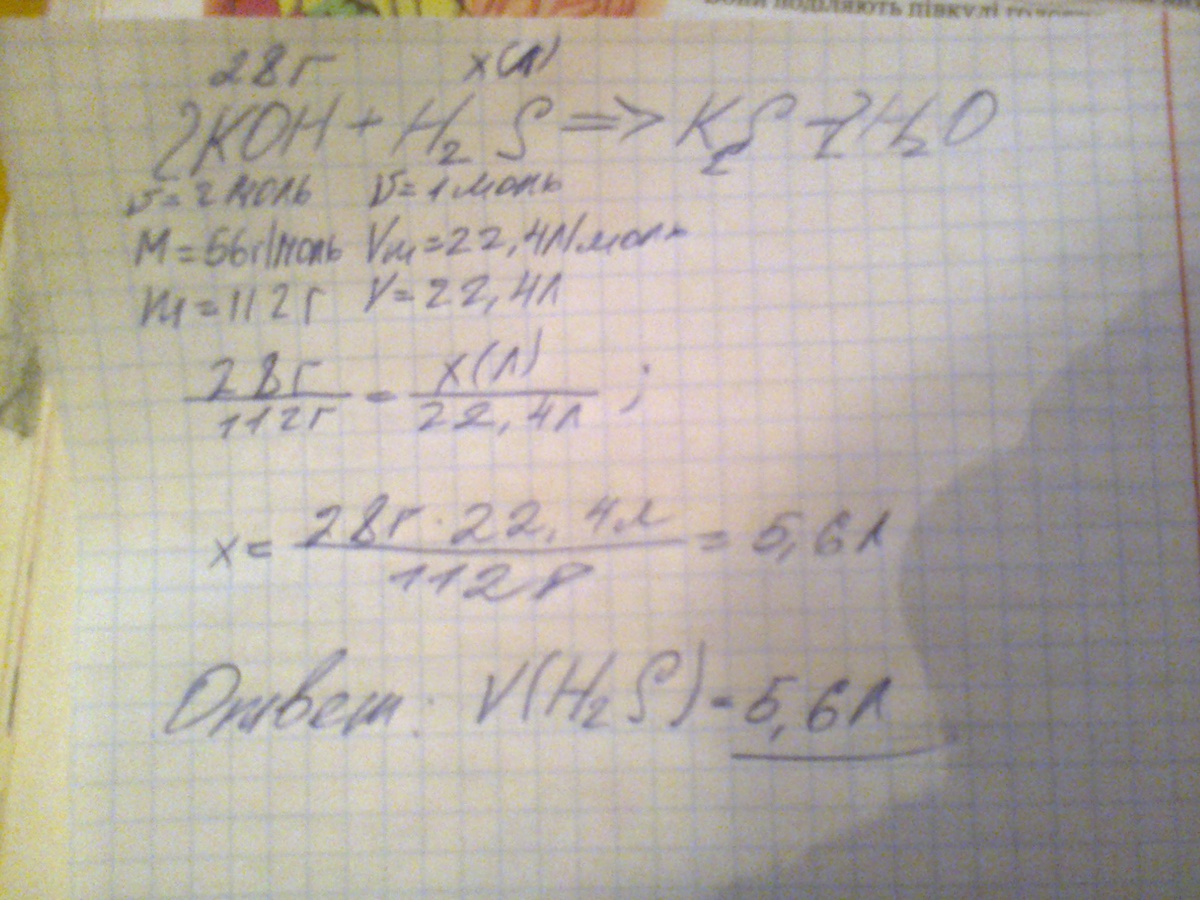 Вони поділяють півкулі
28г x(л)
2KOH + H₂S => K₂S + 2H₂O
ν=2моль ν=1моль
M=56г/моль Vm=22,4л/моль
m=112г V=22,4л
28г/112г = x(л)/22,4л ;
x= 28г·22,4л/112г = 5,6л
Ответ: V(H₂S)=5,6л